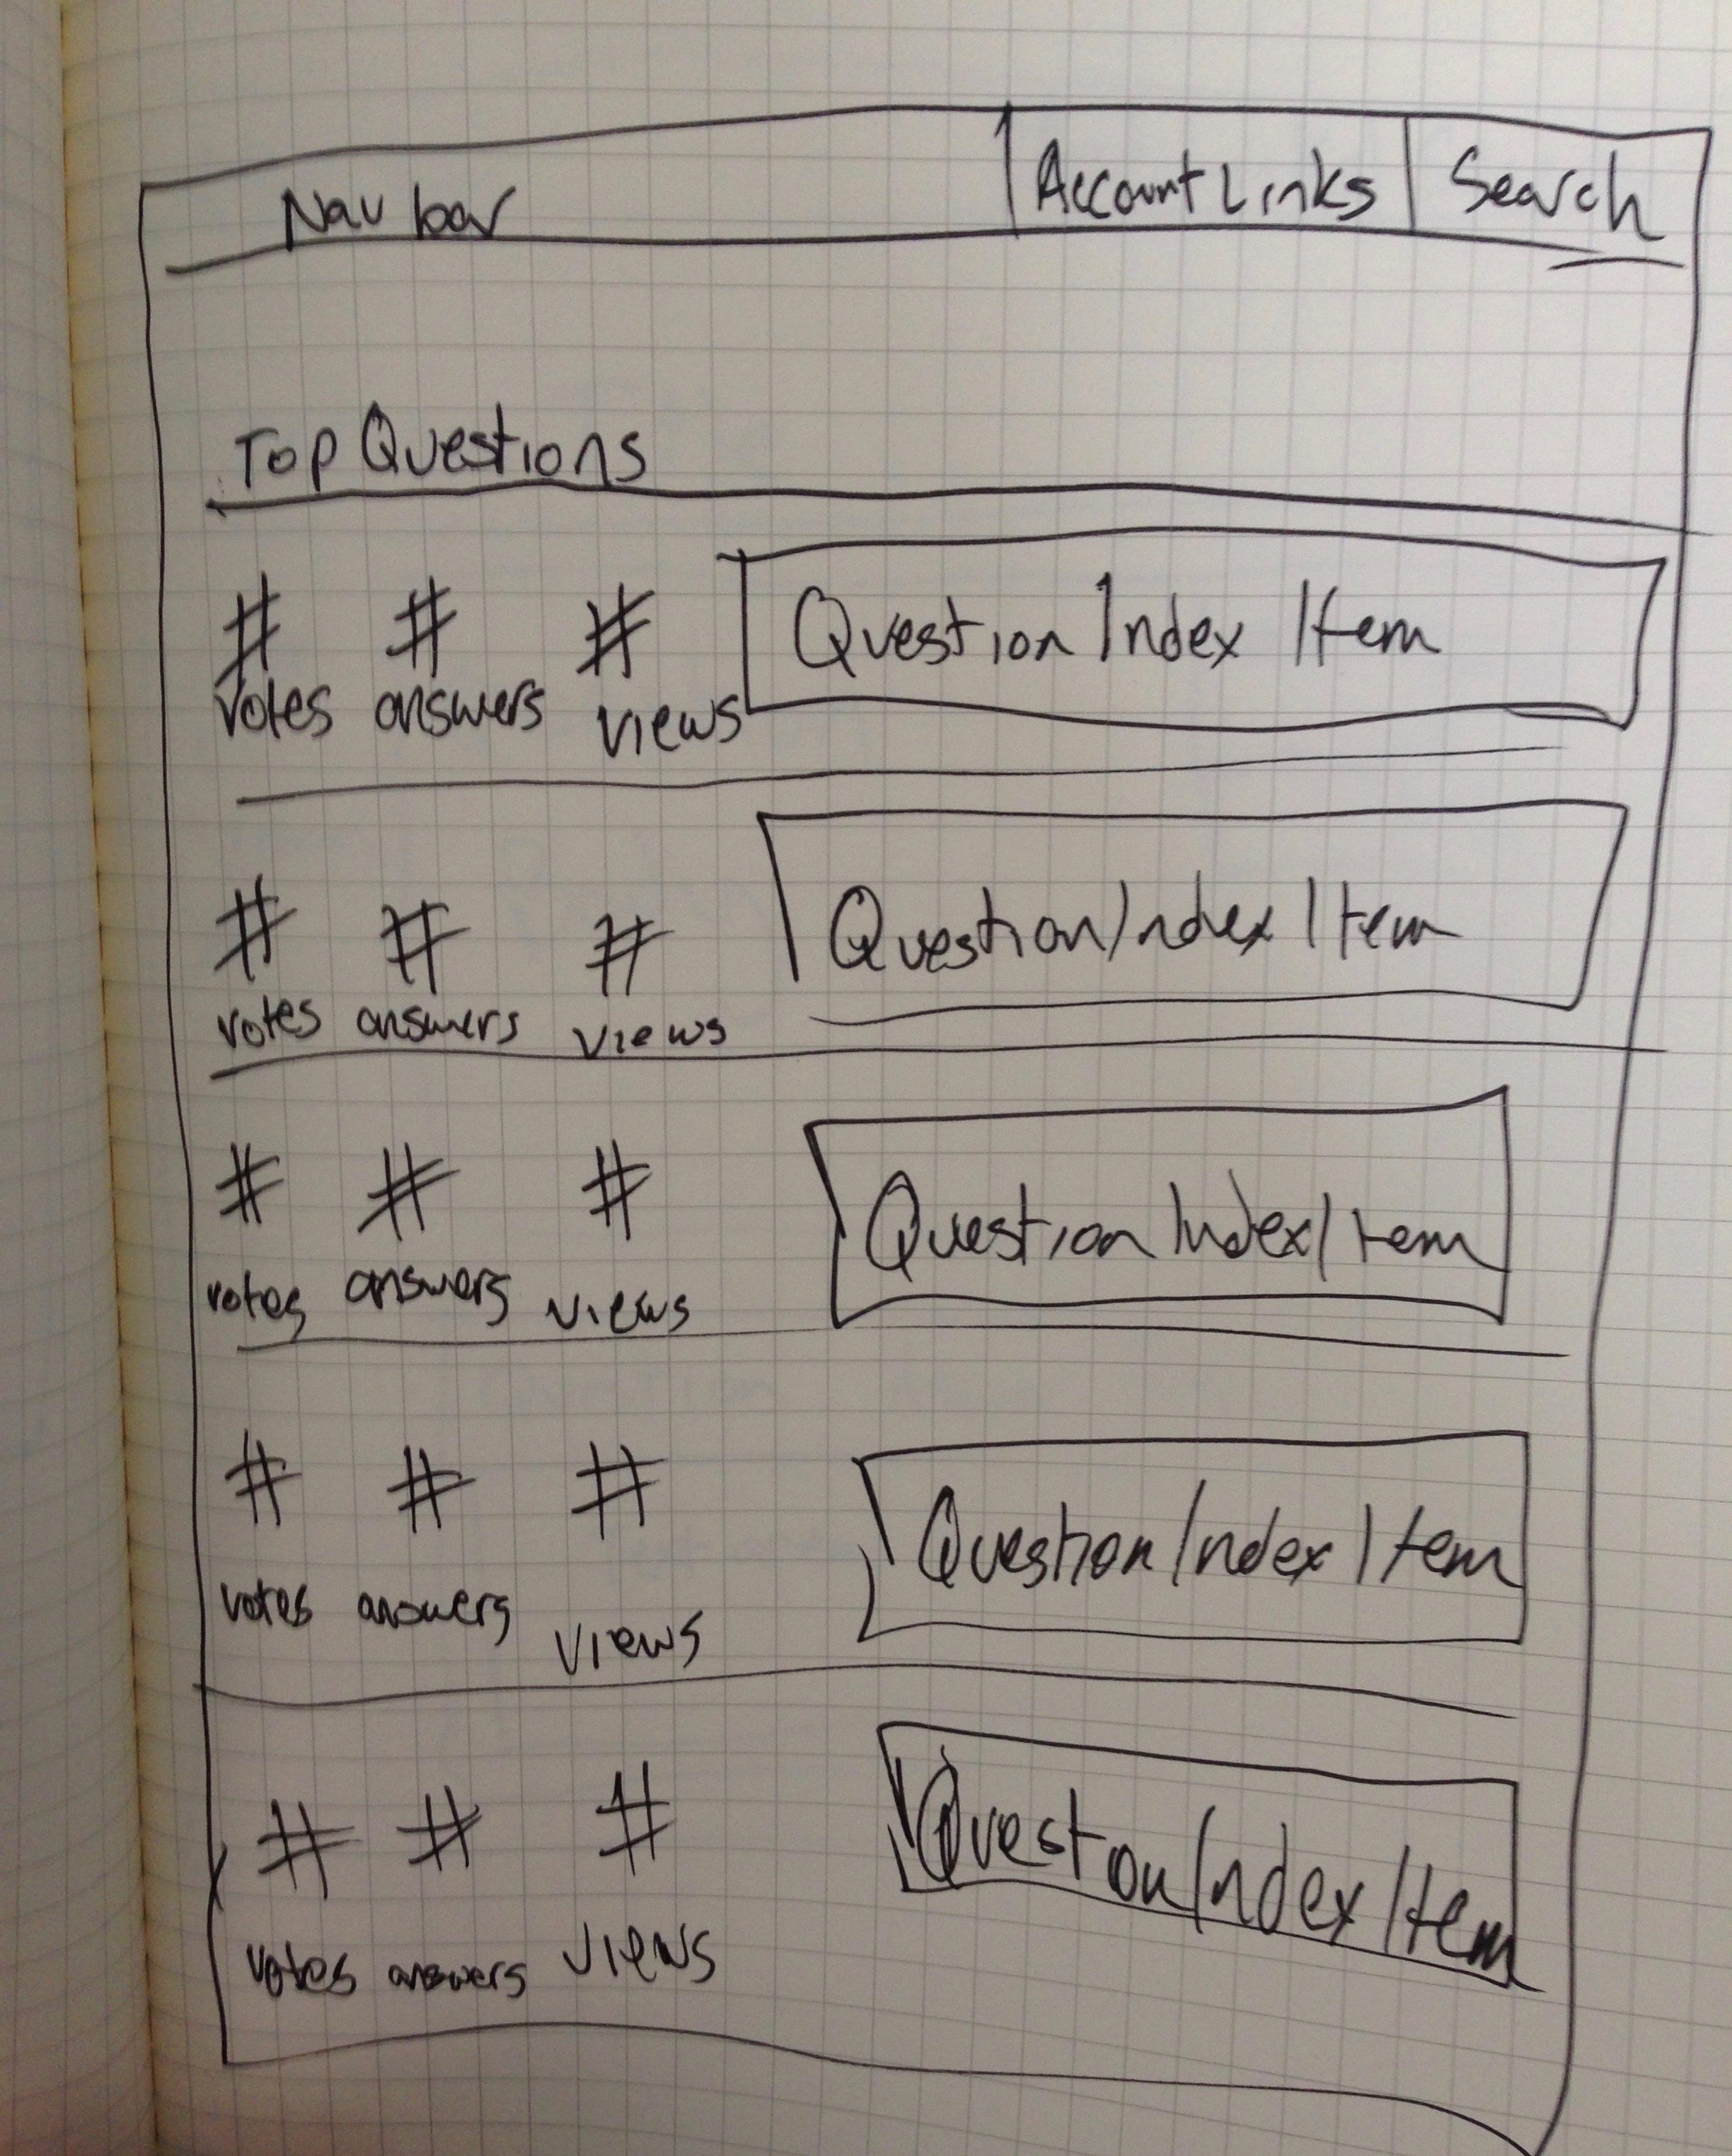 Nav bar Account Links Search
Top Questions
# # # Question Index Item
votes answers views
# # # Question Index Item
votes answers views
# # # Question Index Item
votes answers views
# # # Question Index Item
votes answers views
# # # Question Index Item
votes answers views